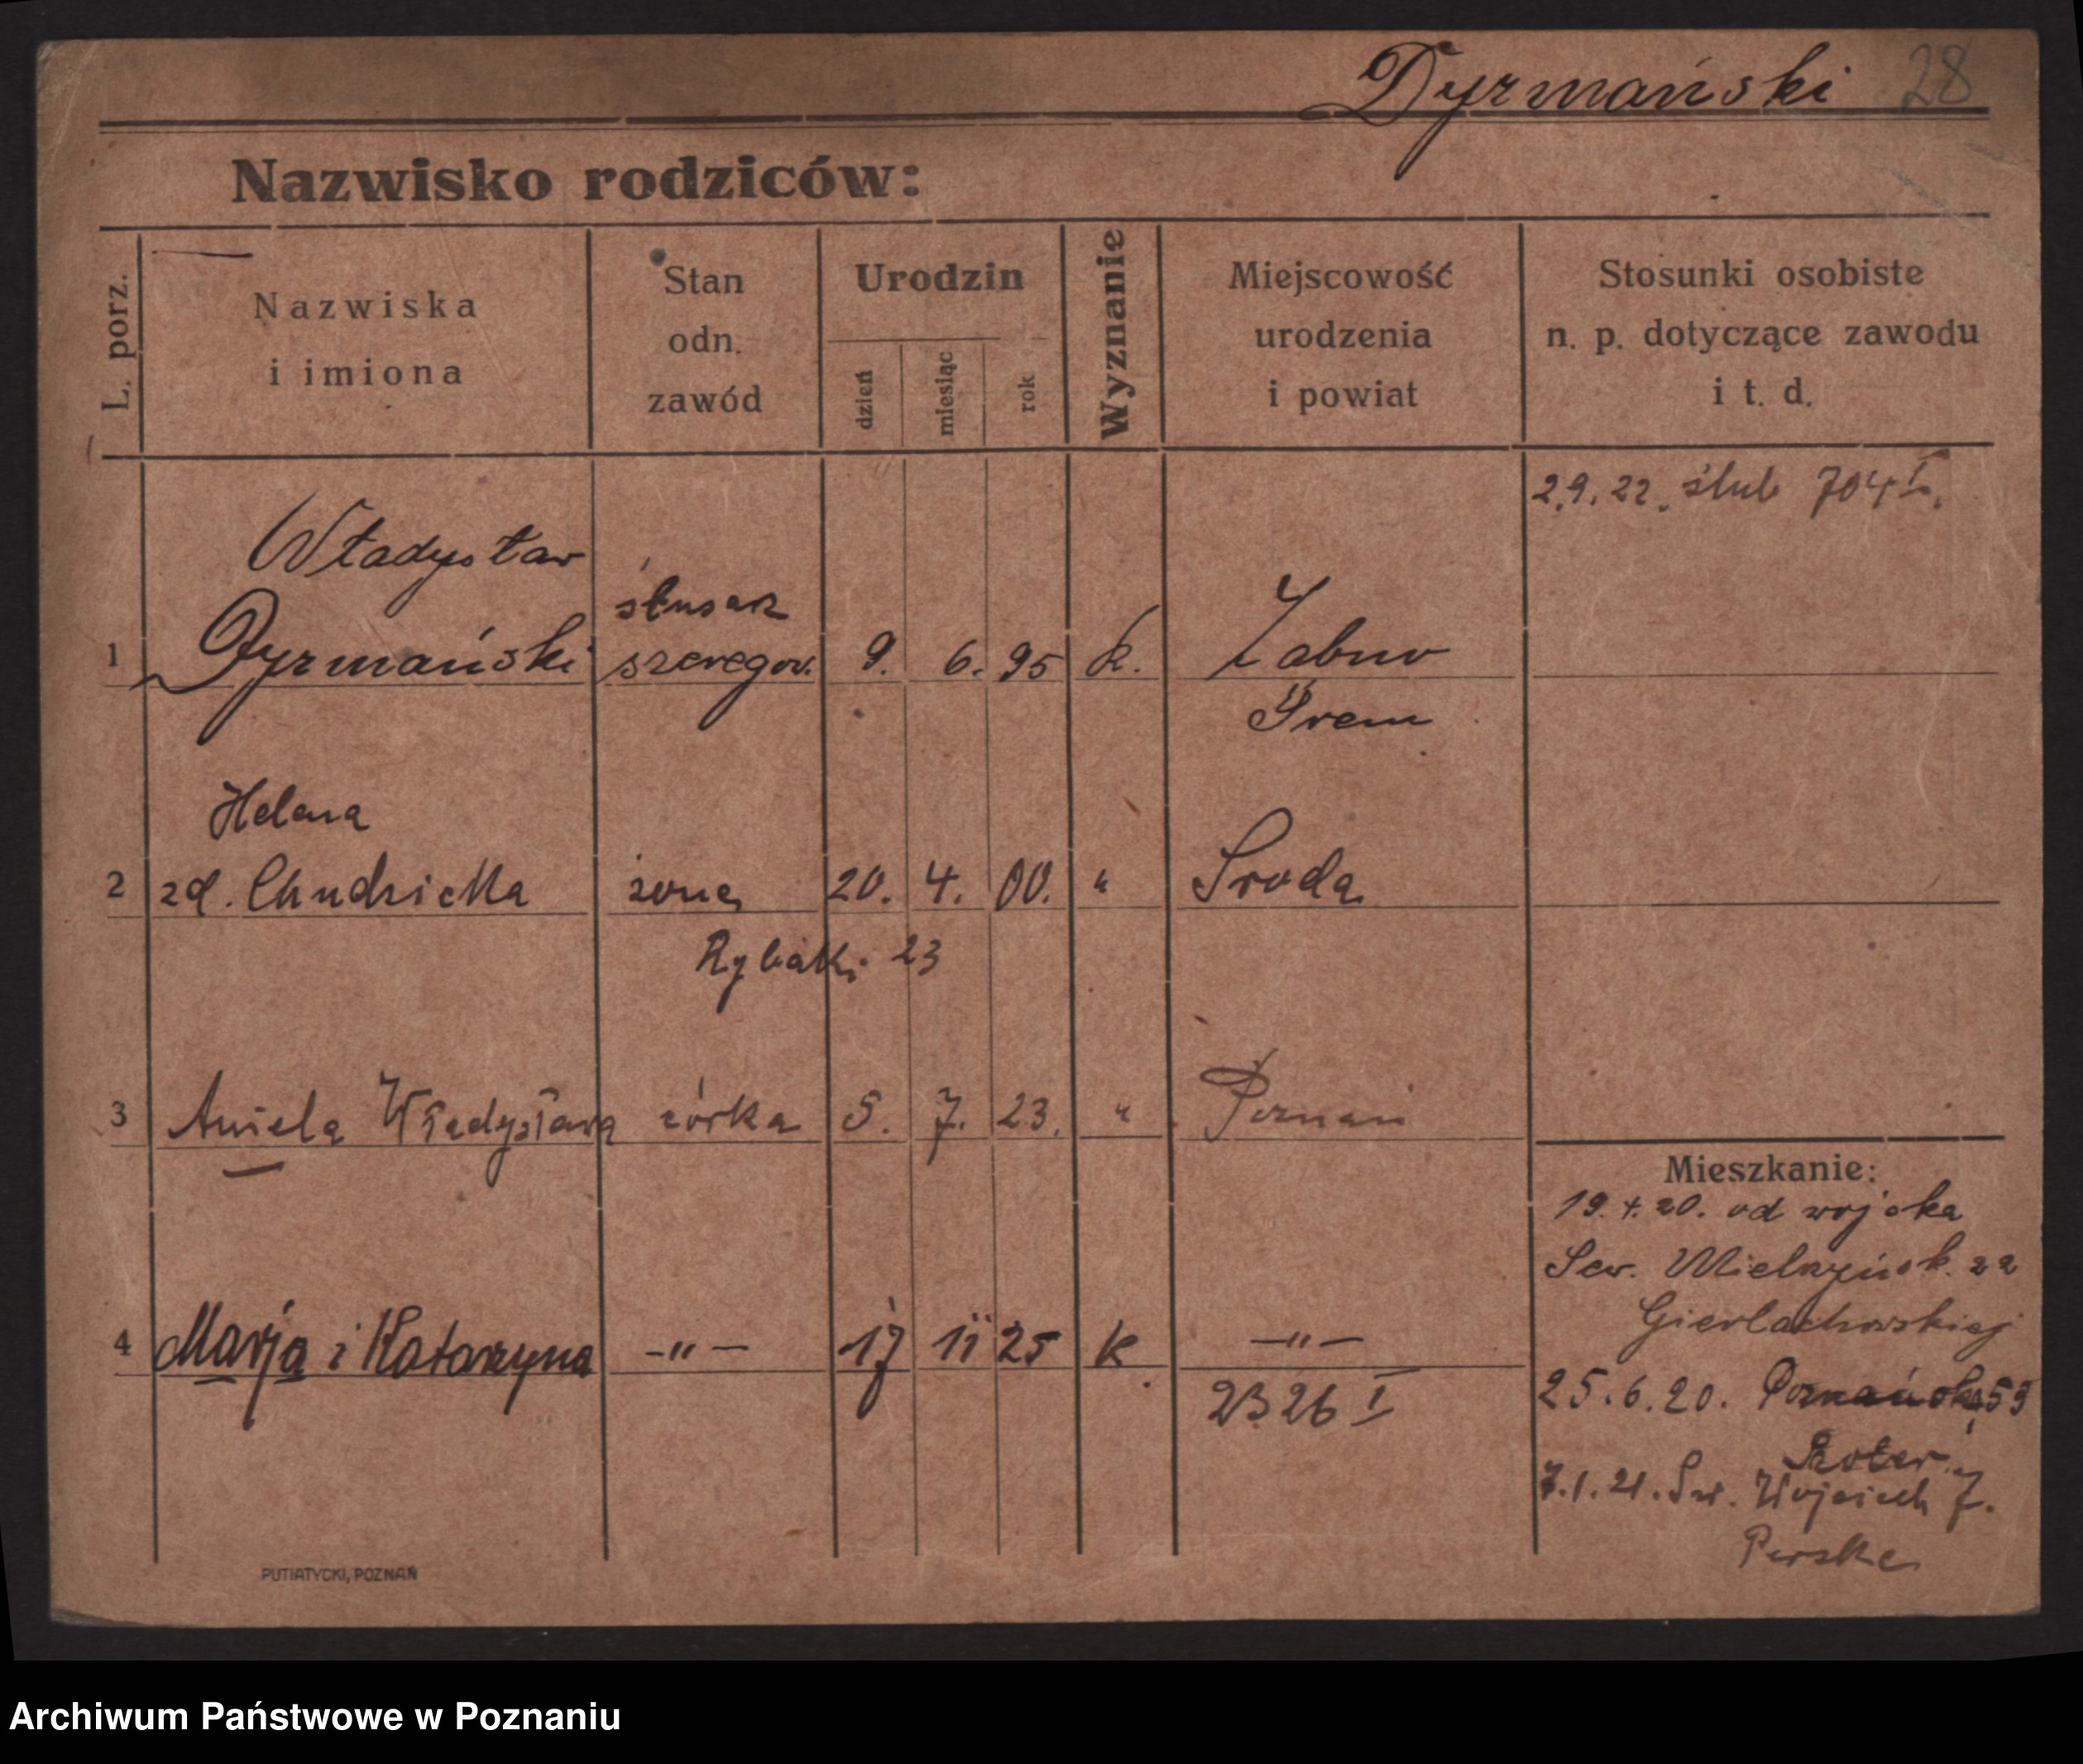 Dyrmański 28
Nazwisko rodziców:
L. porz.
Nazwiska
i imiona
Stan
odn.
zawód
Urodzin
dzień
miesiąc
rok
Wyznanie
Miejscowość
urodzenia
i powiat
Stosunki osobiste
n. p. dotyczące zawodu
i t. d.
2.9.22. ślub 704 I.
Władysław
ślusarz
1 Dyrmański szeregow. 9. 6. 95 k. Żabno
Śrem
Helena
2 zd. Chudzicka żona 20. 4. 00. " Środa
Rybaki 23
3 Aniela Władysława córka 5. 7. 23. " Poznań
Mieszkanie:
19.4.20. od wojska
Sew. Mielżyńsk. 22
Gierlachowskiej
4 Marja i Katarzyna -"- 17 11 25 k -"-
2326 I
25.6.20. Poznańska 53
7.1.21. Św. Wojciech 7.